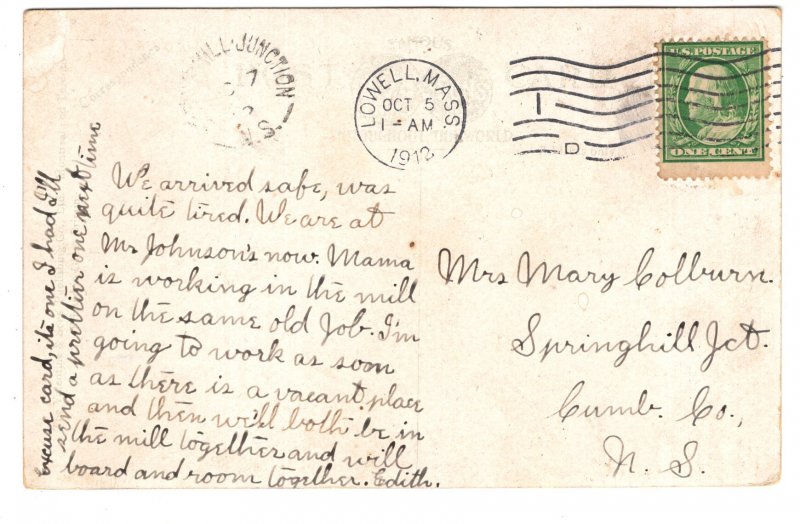 LL JUNCTION
7
N.S.
LOWELL, MASS
OCT 5
1-AM
1912
1
D
U.S. POSTAGE
ONE CENT
We arrived safe, was
quite tired. We are at
Mr Johnson's now. Mama
is working in the mill
on the same old Job. I'm
going to work as soon
as there is a vacant place
and then we'll both be in
the mill together and will
board and room together. Edith.
Excuse card, its one I had I'll
send a prettier one next time
Mrs Mary Colburn.
Springhill Jct.
Cumb. Co.,
N. S.